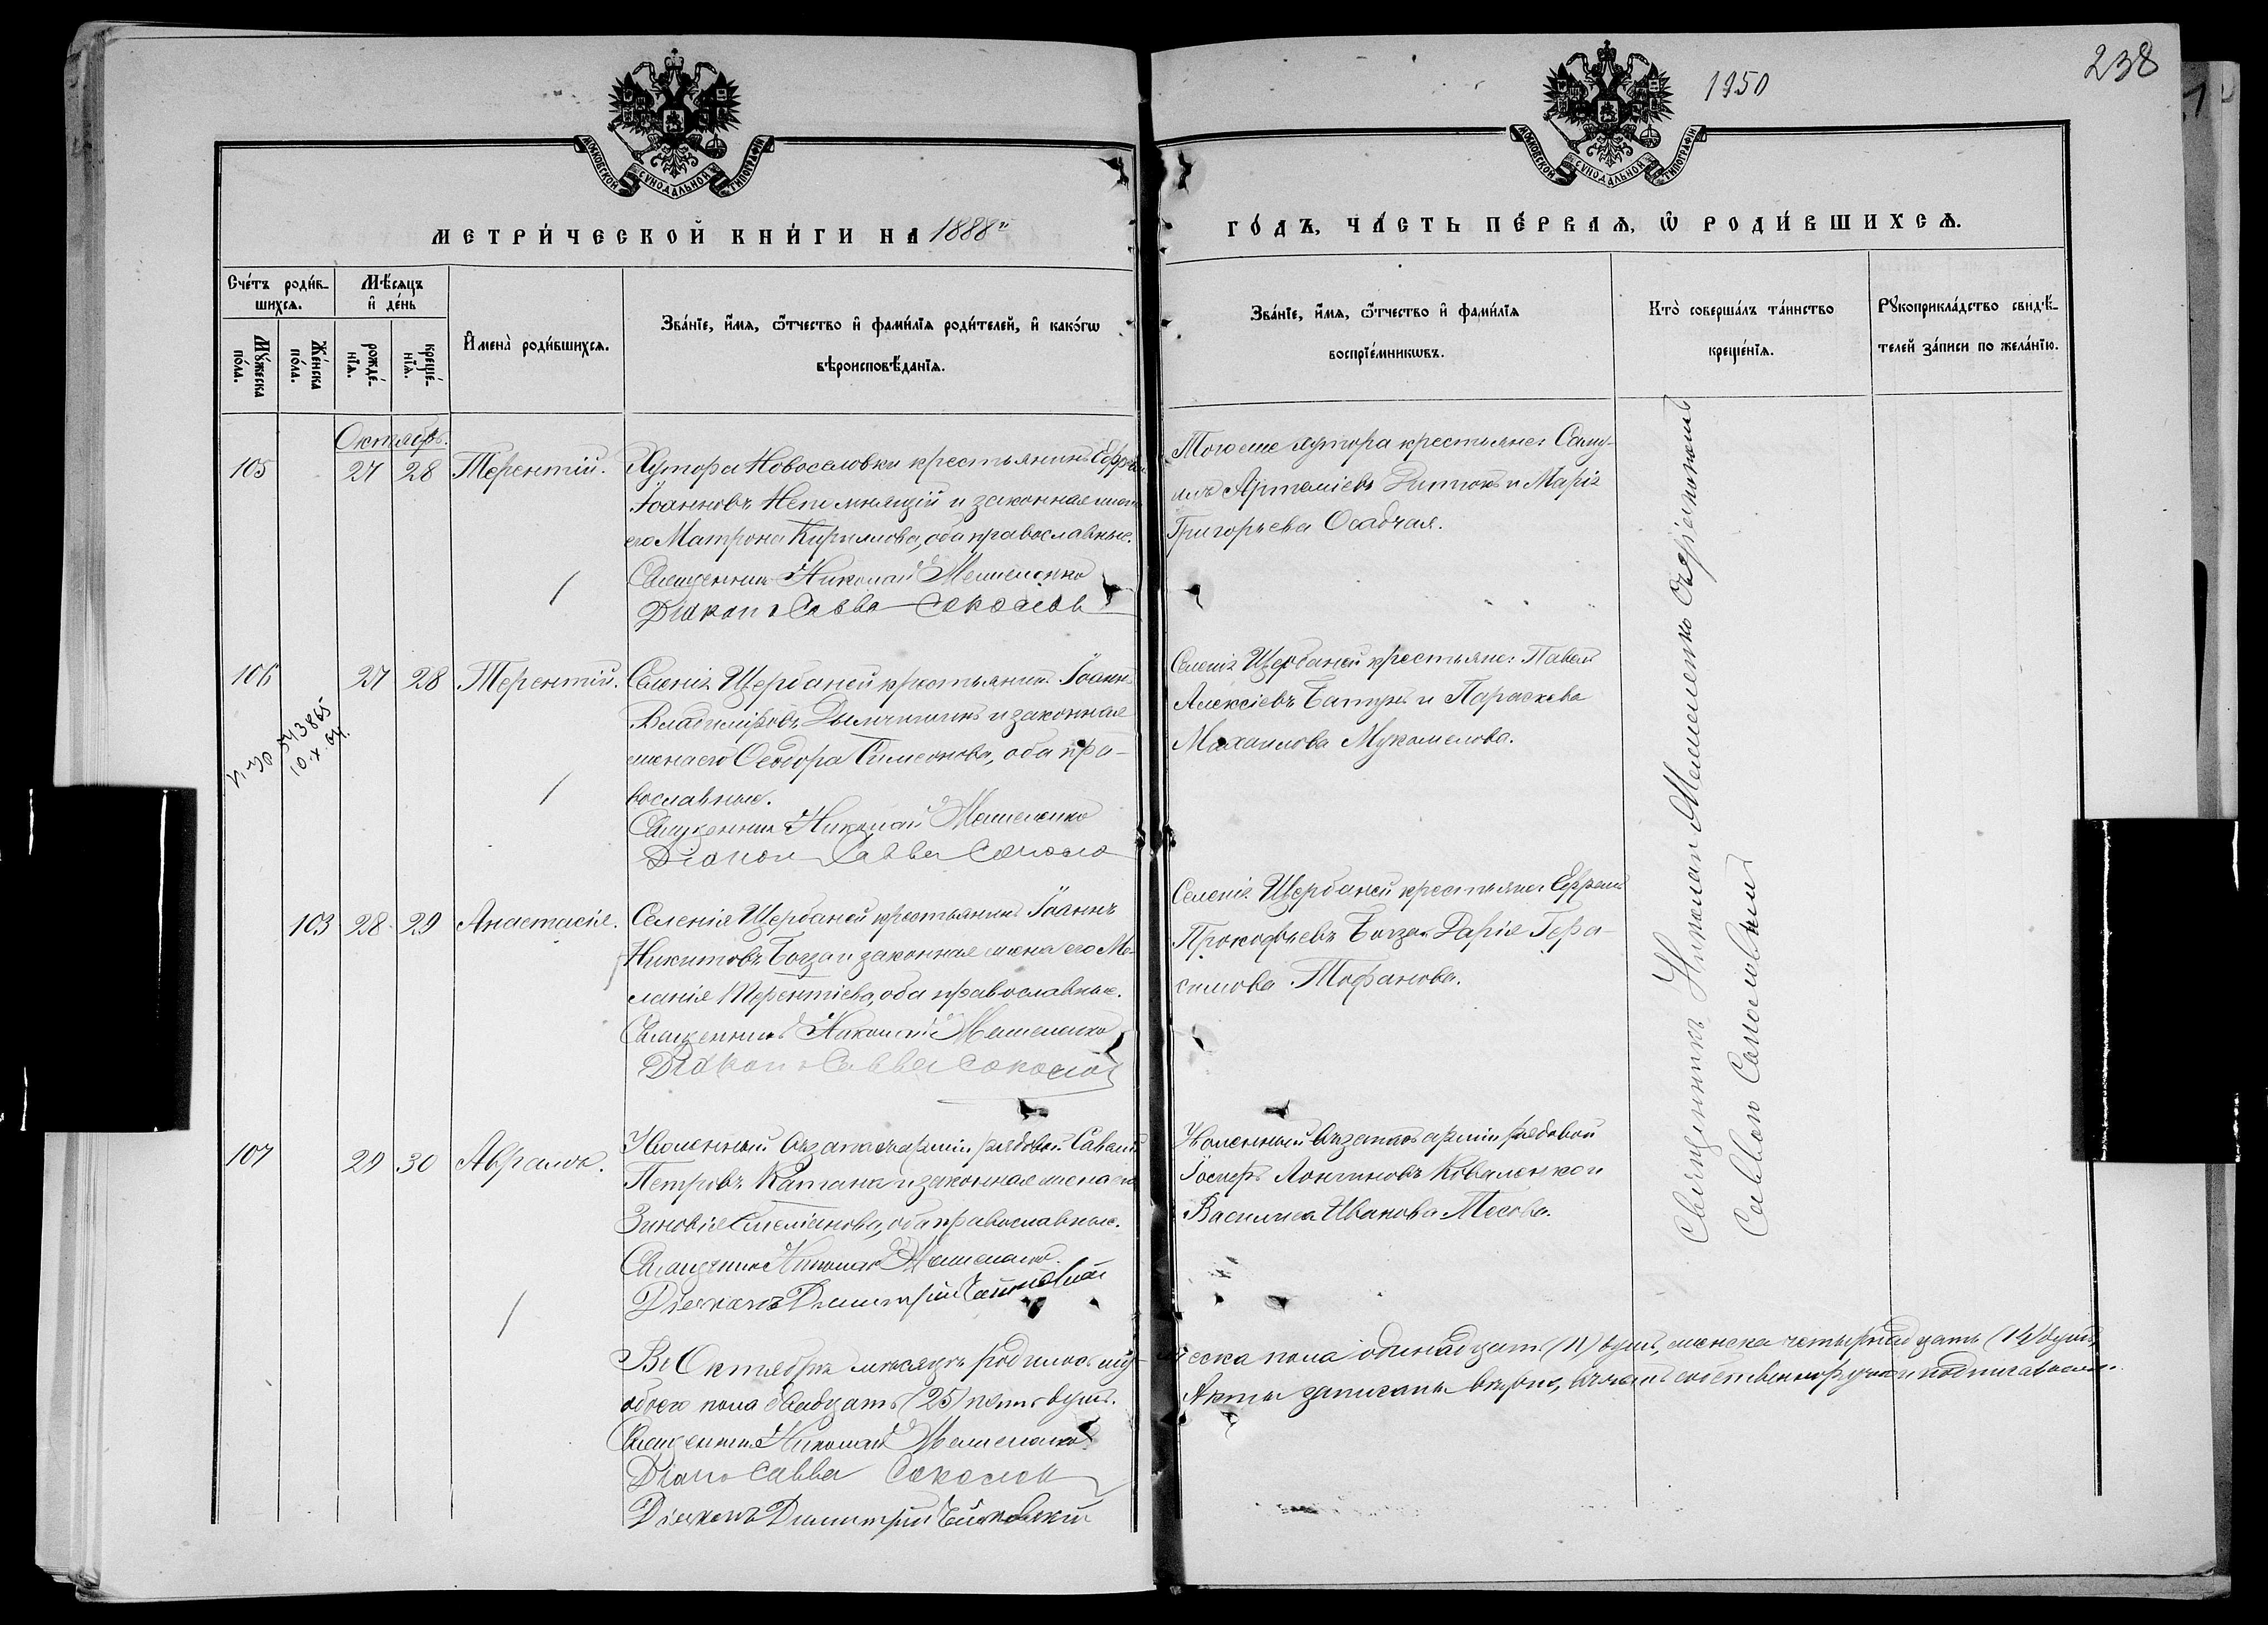 238
1950
МОСКОВСКОЙ СѴНОДАЛЬНОЙ ТИПОГРАФІИ
МОСКОВСКОЙ СѴНОДАЛЬНОЙ ТИПОГРАФІИ
МЕТРИ́ЧЕСКОЙ КНИ́ГИ НА 1888й
ГО́ДЪ, ЧА́СТЬ ПЕ́РВАѦ, Ѿ РОДИ́ВШИХСѦ.
Сче́тъ роди́в-
шихсѧ.
Мꙋ́жеска
по́ла.
Же́нска
по́ла.
Мѣ́сѧцъ
и҆ де́нь
рожде́-
нїѧ.
креще́-
нїѧ.
И҆мена̀ роди́вшихсѧ.
Зва́нїе, и҆́мѧ, ѻ҆́тчество и҆ фами́лїѧ роди́телей, и҆ како́гѡ
вѣроисповѣ́данїѧ.
Зва́нїе, и҆́мѧ, ѻ҆́тчество и҆ фами́лїѧ
воспрїе́мникѡвъ.
Кто̀ соверша́лъ та́инство
креще́нїѧ.
Рꙋкоприкла́дство свидѣ́-
телей за́писи по жела́нїю.
Октябрь.
105 27 28 Терентій.
Хутора Новоселовки крестьянинъ Ефремъ
Іоанновъ Непомнящій и законная жена
его Матрона Кириллова, оба православные.
Священникъ Николай Мешененко
Діаконъ Савва Соколов
Того же хутора крестьяне: Саму-
илъ Артеміевъ и Марія
Григорьева Осадчая.
106 27 28 Терентій.
543865
10.X.04.
Селенія Щербаней крестьянинъ Іоаннъ
Владиміровъ и законная
жена его Ѳеодора Симеонова, оба пра-
вославные.
Священникъ Николай Мешененко
Діаконъ Савва Соколо
Селенія Щербаней крестьяне: Павелъ
Алексіевъ и Параскева
Михаилова
103 28 29 Анастасія.
Селенія Щербаней крестьянинъ Іоаннъ
Никитовъ Богза и законная жена его Ме-
ланія Терентіева, оба православные.
Священникъ Николай Мешененко
Діаконъ Савва Соколов
Селенія Щербаней крестьяне: Ефремъ
Прокофьевъ Богза и Дарія Гера-
симова Тофанова.
107 29 30 Аврамъ.
Уволенный въ запасъ арміи рядовой
Петровъ Катана и законная жена его
Зиновія оба православные.
Священникъ Николай Мешененко
Діаконъ Димитрій
Уволенный въ запасъ арміи рядовой
Іосифъ Лонгиновъ Коваленко и
Василиса Иванова
Священникъ Николай Мешененко съ діакономъ
Саввою Соколовымъ
Въ Октябрѣ мѣсяцѣ родилось му-
жеска пола одинадцать (11) душъ, женска четырнадцать (14) душъ,
обоего пола двадцать (25) пять душъ.
Акты записаны вѣрно, въ чемъ собственноручно и подписываемся.
Священникъ Николай Мешененко
Діаконъ Савва Соколов
Діаконъ Димитрій